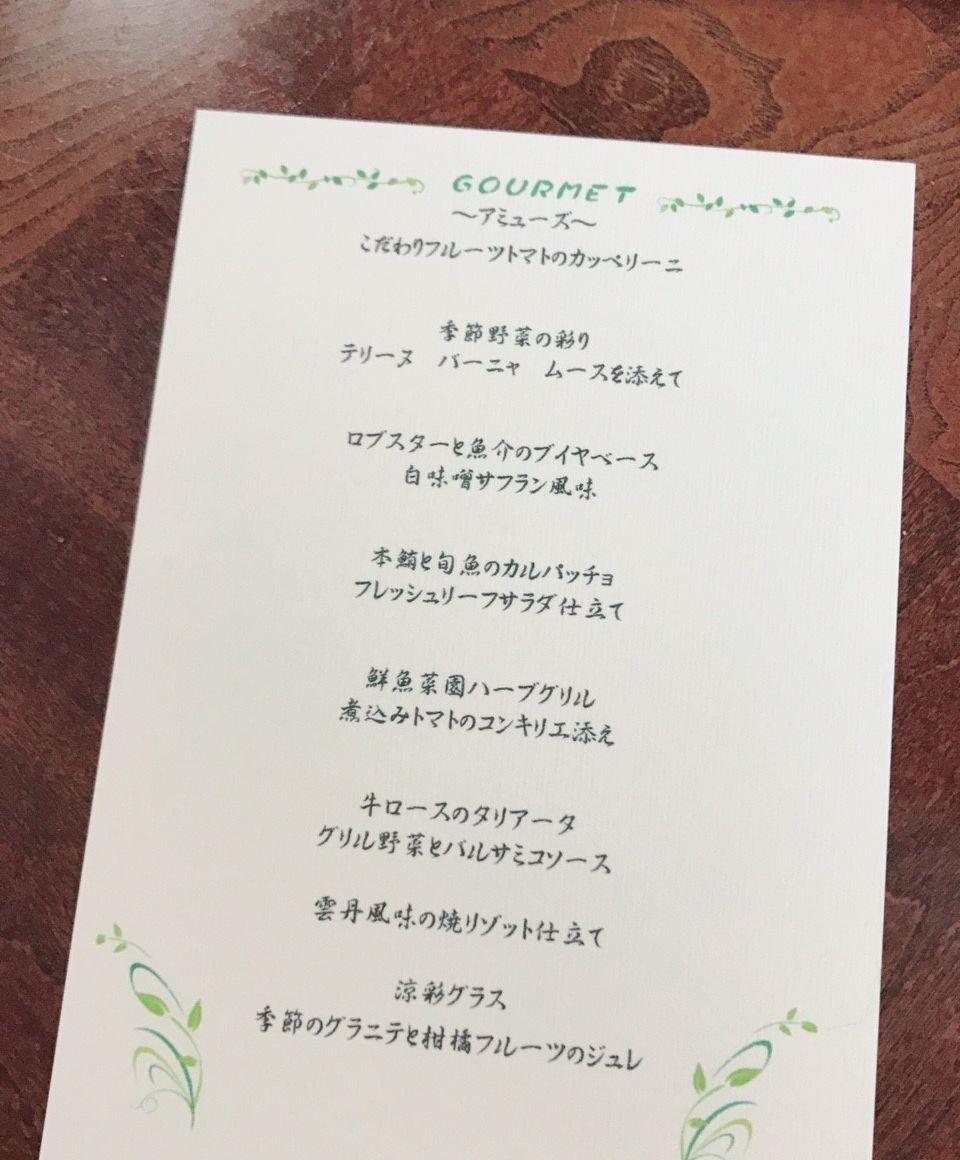 GOURMET
～アミューズ～
こだわりフルーツトマトのカッペリーニ
季節野菜の彩り
テリーヌ　バーニャ　ムースを添えて
ロブスターと魚介のブイヤベース
白味噌サフラン風味
本鮪と旬魚のカルパッチョ
フレッシュリーフサラダ仕立て
鮮魚菜園ハーブグリル
煮込みトマトのコンキリエ添え
牛ロースのタリアータ
グリル野菜とバルサミコソース
雲丹風味の焼リゾット仕立て
涼彩グラス
季節のグラニテと柑橘フルーツのジュレ